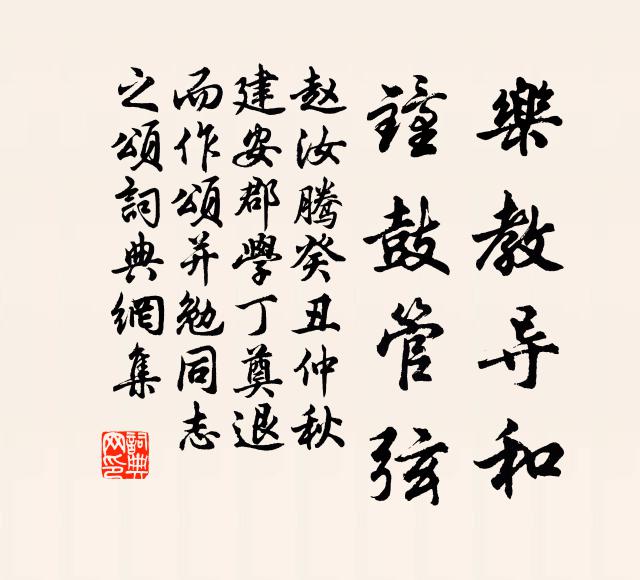 樂教导和
鐘鼓管弦
赵汝腾癸丑仲秋
建安郡學丁奠退
而作頌并勉同志
之頌詞典網集
詞典
网印